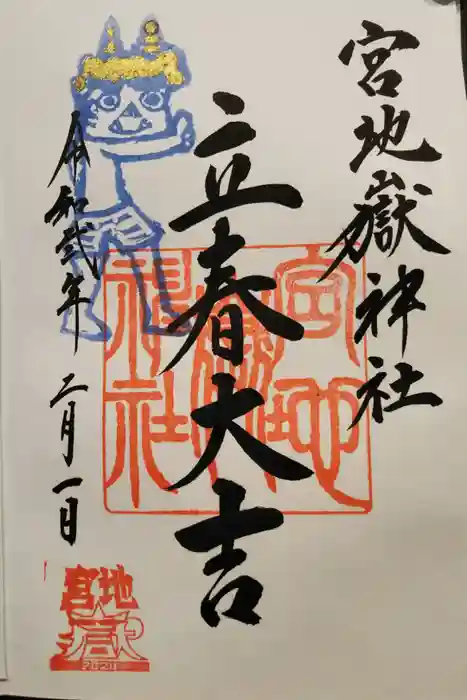 宮地嶽神社
立春大吉
令和弐年
二月一日
宮地嶽神社
宮地
嶽
2020